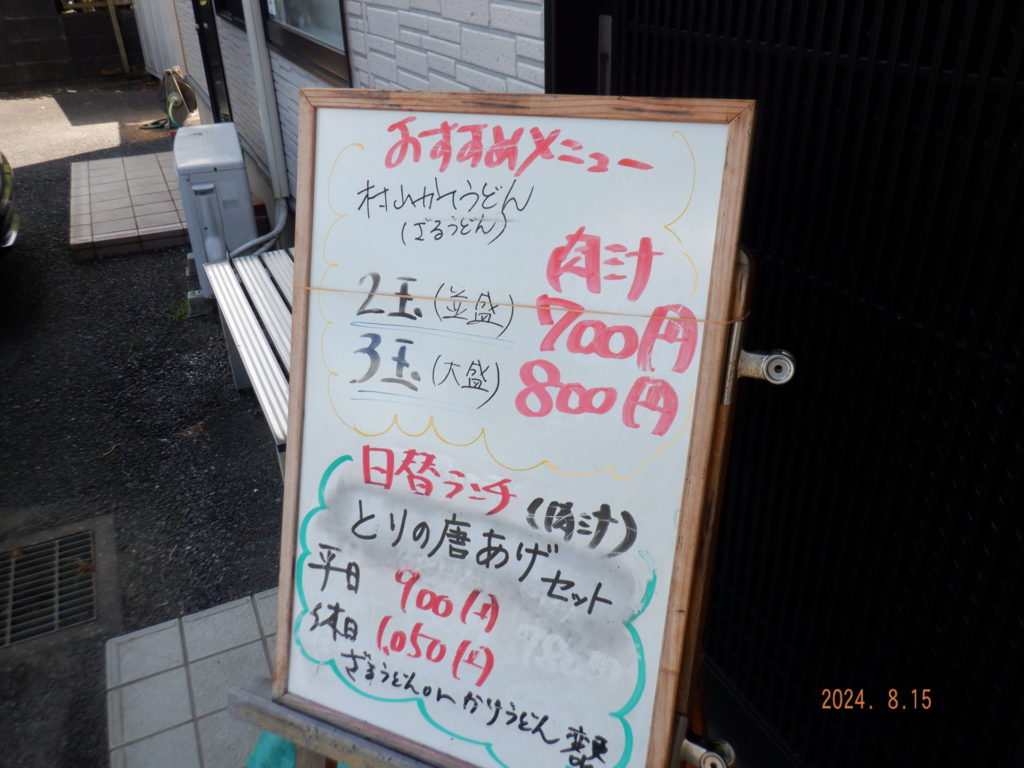 おすすめメニュー
村山かてうどん
(ざるうどん)
肉汁
2玉(並盛) 700円
3玉(大盛) 800円
日替ランチ (肉汁)
とりの唐あげセット
平日 900円
休日 1,050円
ざるうどんorかけうどん 変更
2024. 8.15